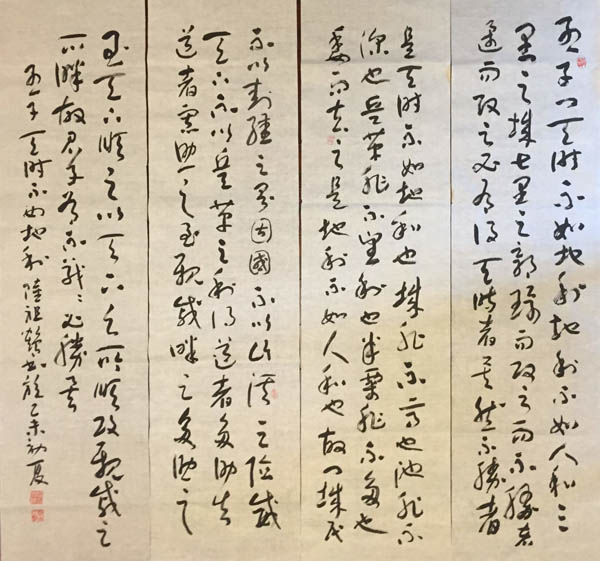 孟子曰天时不如地利地利不如人和三
里之城七里之郭環而攻之而不勝夫
環而攻之必有得天时者矣然不勝者
是天时不如地利也城非不高也池非不
深也兵革非不堅利也米粟非不多也
委而去之是地利不如人和也故曰域民
不以封疆之界固國不以山溪之险威
天下不以兵革之利得道者多助失
道者寡助之至親戚畔之多助之
至天下順之以天下之所順攻親戚之
所畔故君子有不戰戰必勝矣
孟子天时不如地利 陸祖书於乙未初夏